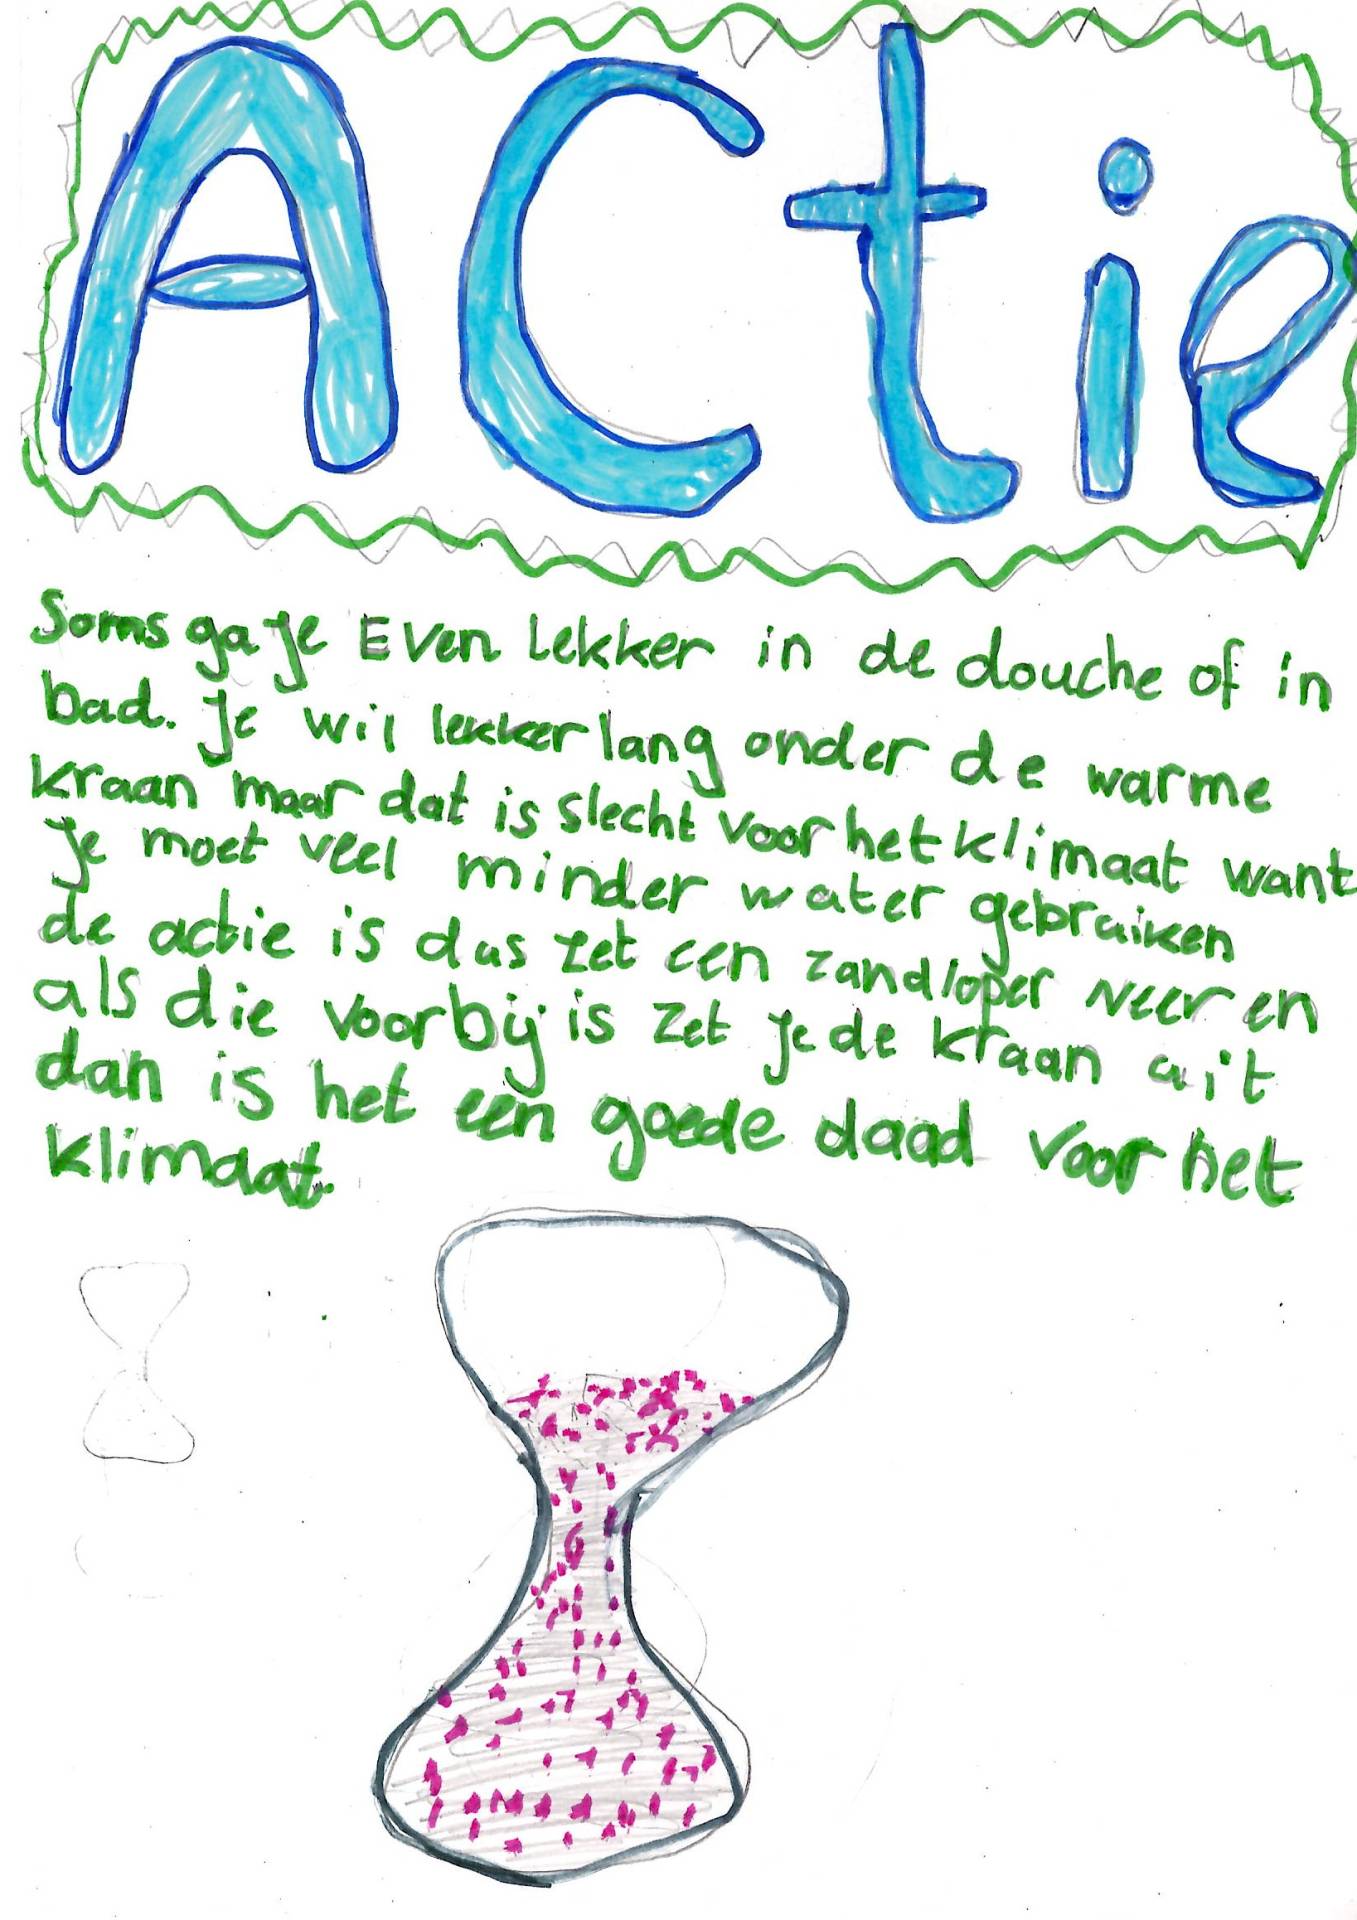 ACtie
Soms ga je Even lekker in de douche of in
bad. je wil lekker lang onder de warme
kraan maar dat is slecht voor het klimaat want
je moet veel minder water gebraiken
de actie is dus zet een zandloper neer en
als die voorbij is zet je de kraan uit
dan is het een goede daad voor het
klimaat.